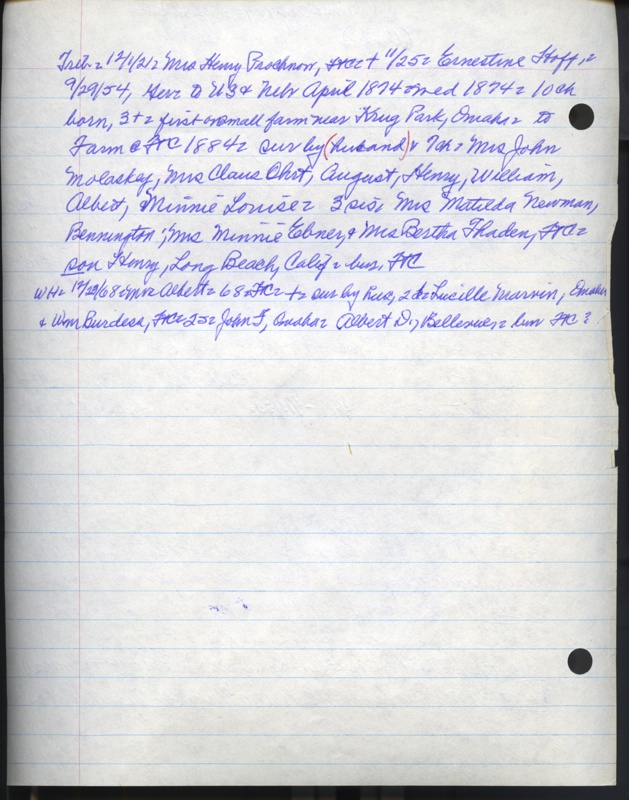 Trib = 12/1/21 = Mrs Henry Prochnow, FtC = + 11/25 = Ernestine Hoff, =
9/29/54, Ger = to US & Nebr April 1874 = med 1874 = 10 ch
born, 3 + = first on small farm near Krug Park, Omaha = to
Farm @ FtC 1884 = sur by (husband) & 7 ch = Mrs John
Molaskey, Mrs Claus Ohrt, August, Henry, William,
Albert, Minnie Louise = 3 sis = Mrs Matilda Newman,
Bennington; Mrs Minnie Ebner, & Mrs Bertha Thaden, FtC =
son Henry, Long Beach, Calif = bur, FtC
WH = 12/29/68 = Mrs Albert = 68 = FtC = + = sur by hus, 2 d = Lucille Marvin, Omaha
& Wm Burdess, FtC = 2 s = John F, Omaha = Albert D., Bellevue = bur FtC =